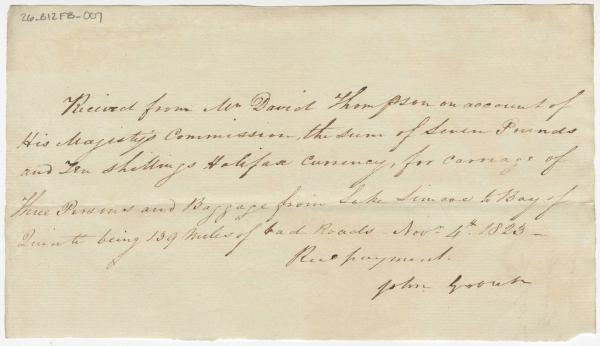 26-B12FB-007
Reiceved from Mr David Thompson on account of
His Majestys Commission, the sum of Seven Pounds
and Ten Shillings Halifax Currency, for carriage of
Three Persons and Baggage from Lake Simcoe to Bay of
Quinte being 139 Miles of bad Roads - Novr 4th. 1823 -
Recd payment.
John